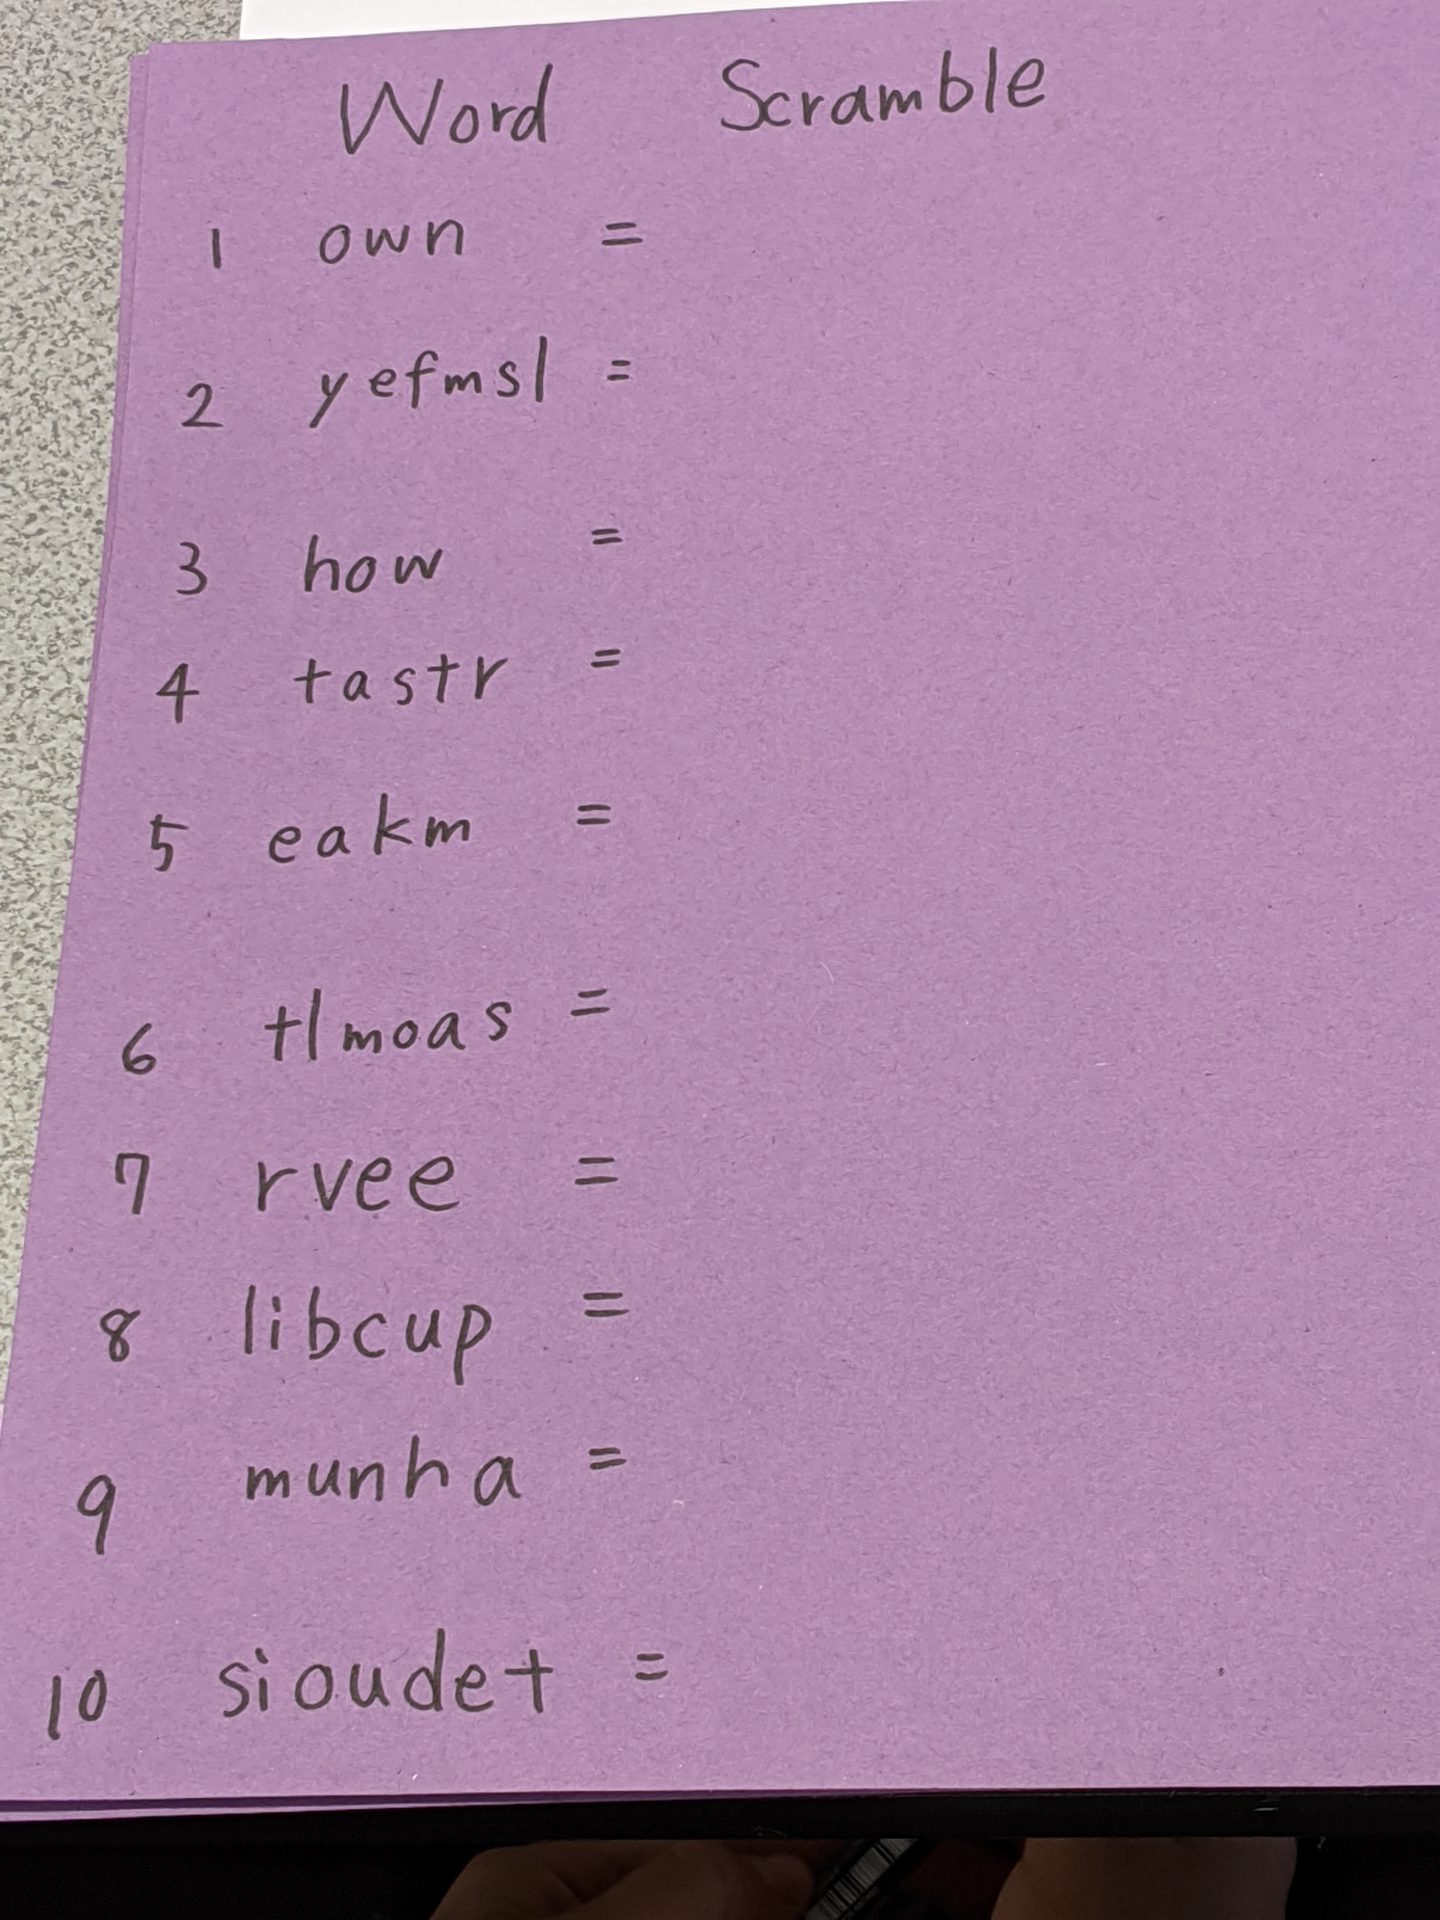 Word Scramble
1 own =
2 yefmsl =
3 how =
4 tastr =
5 eakm =
6 tlmoas =
7 rvee =
8 libcup =
9 munha =
10 sioudet =